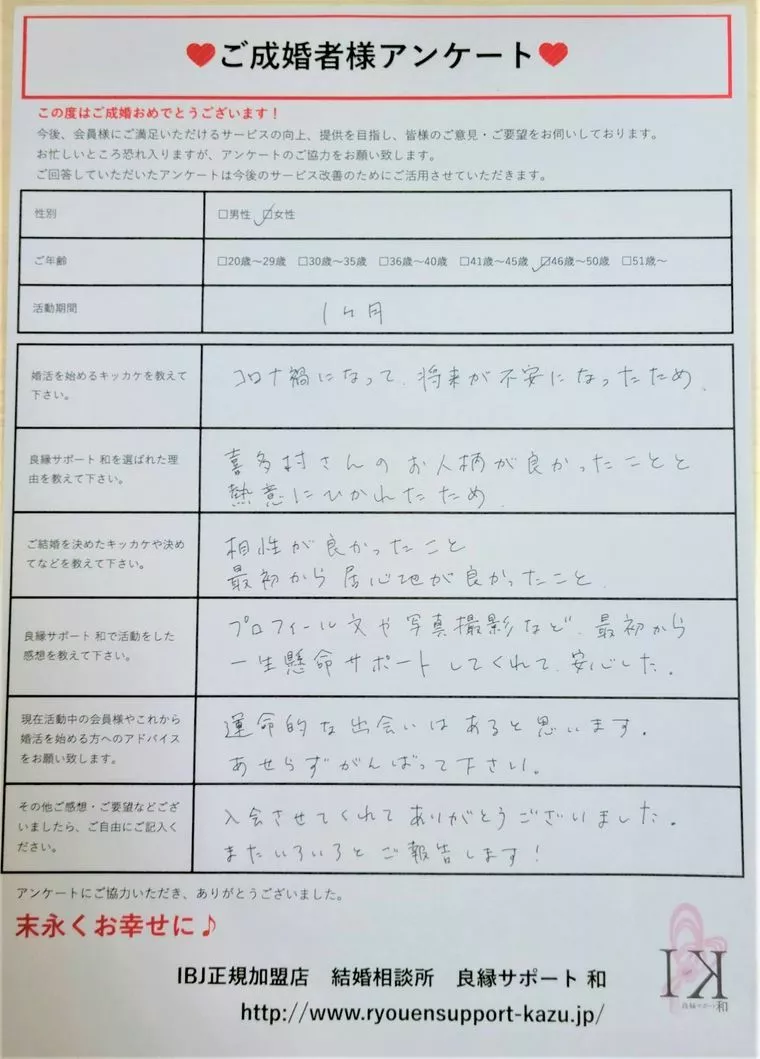 ❤ご成婚者様アンケート❤
この度はご成婚おめでとうございます！
今後、会員様にご満足いただけるサービスの向上、提供を目指し、皆様のご意見・ご要望をお伺いしております。
お忙しいところ恐れ入りますが、アンケートのご協力をお願い致します。
ご回答していただいたアンケートは今後のサービス改善のためにご活用させていただきます。
性別
□男性 ☑女性
ご年齢
□20歳～29歳 □30歳～35歳 □36歳～40歳 □41歳～45歳 ☑46歳～50歳 □51歳～
活動期間
1ヶ月
婚活を始めるキッカケを教えて
下さい。
コロナ禍になって、将来が不安になったため。
良縁サポート 和を選ばれた理
由を教えて下さい。
喜多村さんのお人柄が良かったことと
熱意にひかれたため。
ご結婚を決めたキッカケや決め
てなどを教えて下さい。
相性が良かったこと
最初から居心地が良かったこと。
良縁サポート 和で活動をした
感想を教えて下さい。
プロフィール文や写真撮影など、最初から
一生懸命サポートしてくれて、安心した。
現在活動中の会員様やこれから
婚活を始める方へのアドバイス
をお願い致します。
運命的な出会いはあると思います。
あせらずがんばって下さい。
その他ご感想・ご要望などござ
いましたら、ご自由にご記入く
ださい。
入会させてくれてありがとうございました。
またいろいろとご報告します！
アンケートにご協力いただき、ありがとうございました。
末永くお幸せに♪
IBJ正規加盟店 結婚相談所 良縁サポート 和
http://www.ryouensupport-kazu.jp/
良縁サポート和